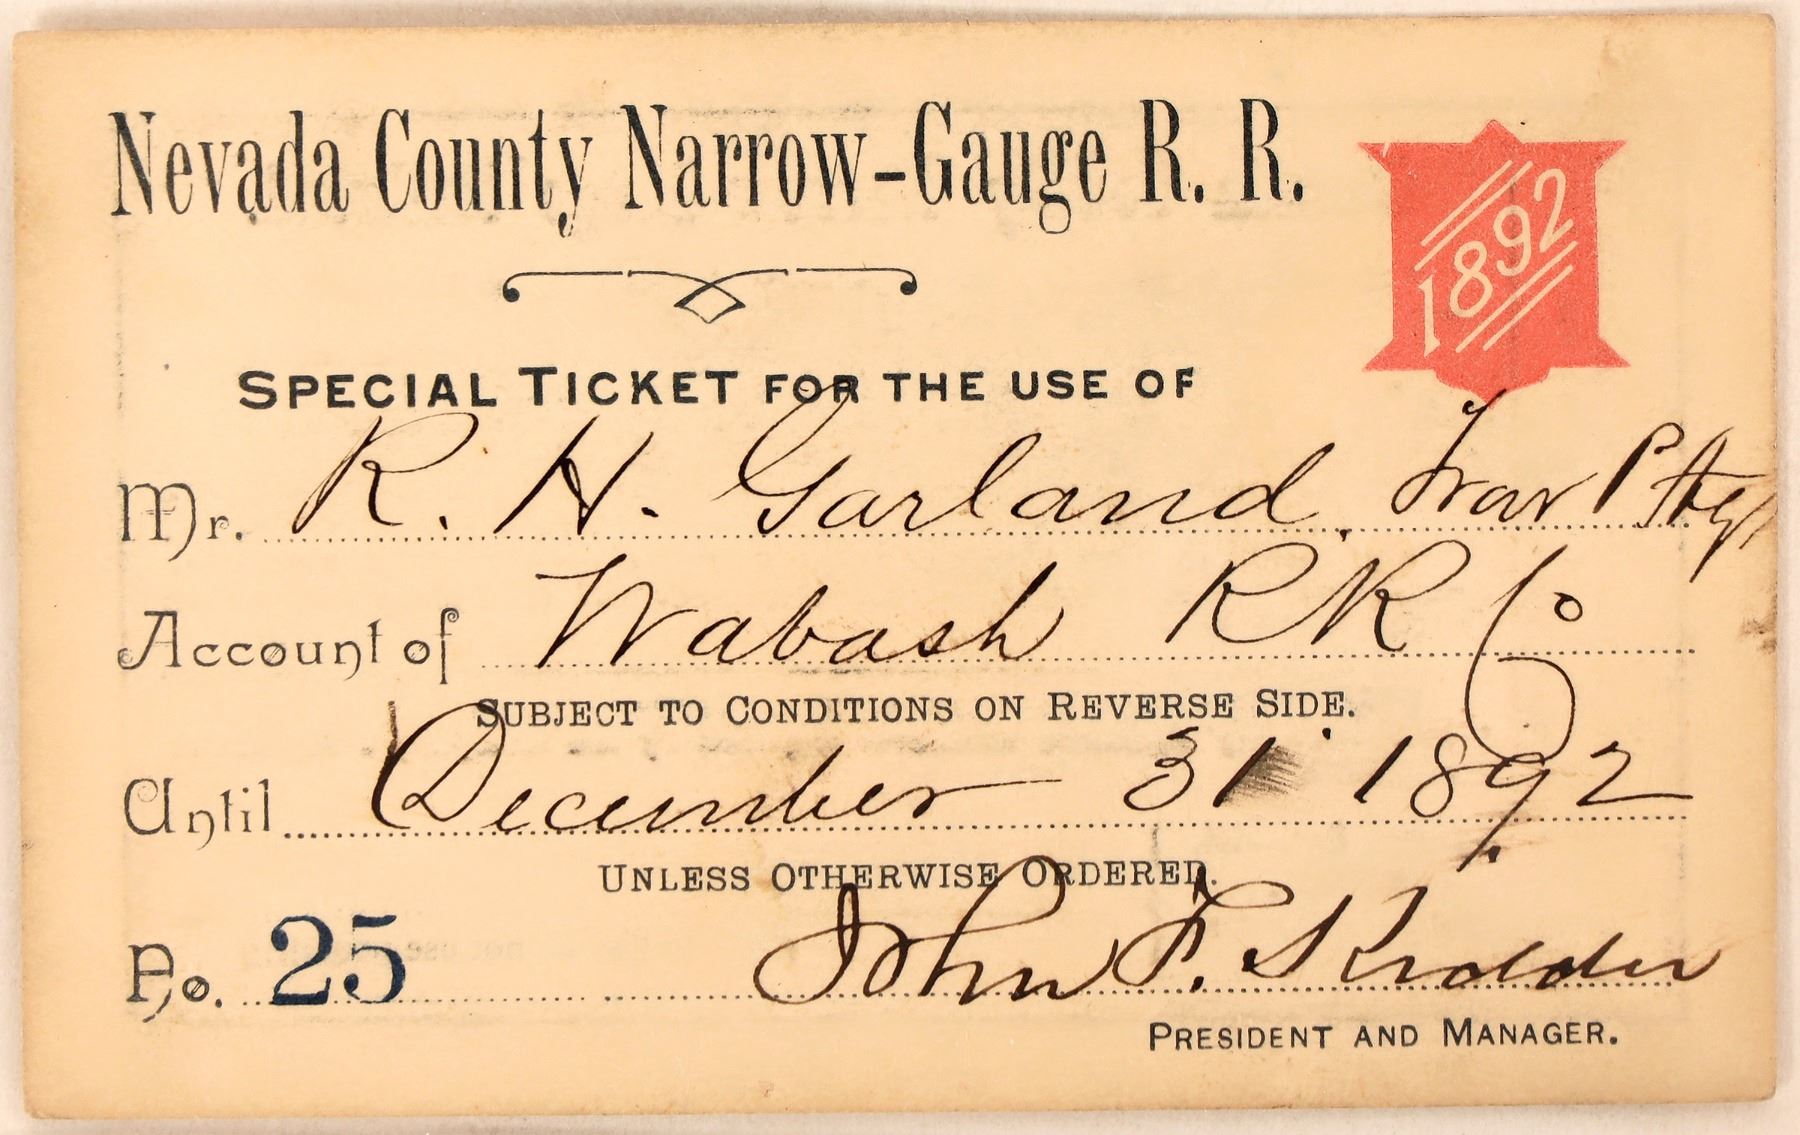 Nevada County Narrow-Gauge R. R.
1892
SPECIAL TICKET FOR THE USE OF
Mr. R. H. Garland, Trav P
Account of Wabash RR Co
SUBJECT TO CONDITIONS ON REVERSE SIDE.
Until December 31 1892
UNLESS OTHERWISE ORDERED.
No. 25 John F. Kidder
PRESIDENT AND MANAGER.